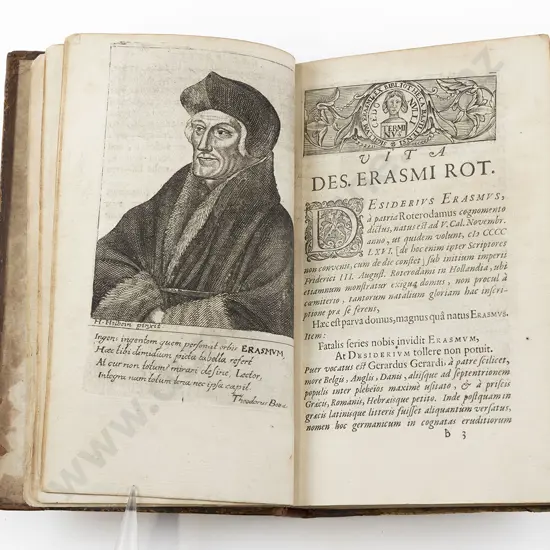 H. Holbein pinxit
Ingens ingentem quem personat orbis ERASMVM,
Hæc tibi dimidium picta tabella refert.
At cur non totum? mirari desine, Lector,
Integra nam totum terra nec ipsa capit.
Theodorus Beza
TERMI
NVS
VITA
DES. ERASMI ROT.
DESIDERIVS ERASMVS,
à patria Roterodamus cognomento
dictus, natus est ad V. Cal. Novembr.
anno, ut quidem volunt, CCCC
LXVI. [de hoc enim inter Scriptores
non convenit, cum de die constet] sub initium imperii
Friderici III. August. Roterodami in Hollandia, ubi
etiamnum monstratur exigua domus, non procul à
cœmiterio, tantorum natalium gloriam hac inscri-
ptione præ se ferens,
Hæc est parva domus, magnus quâ natus ERASMVS.
Item:
Fatalis series nobis invidit ERASMVM,
At DESIDERIVM tollere non potuit.
Puer vocatus est Gerardus Gerardi, à patre scilicet,
more Belgis, Anglis, Danis, aliisque ad septentrionem
populis inter plebeios maximè usitato, & à priscis
Græcis, Romanis, Hebræisque petito. Inde postquam in
græcis latinisque litteris fuisset aliquantum versatus,
nomen hoc germanicum in cognatas eruditiorum
B 3